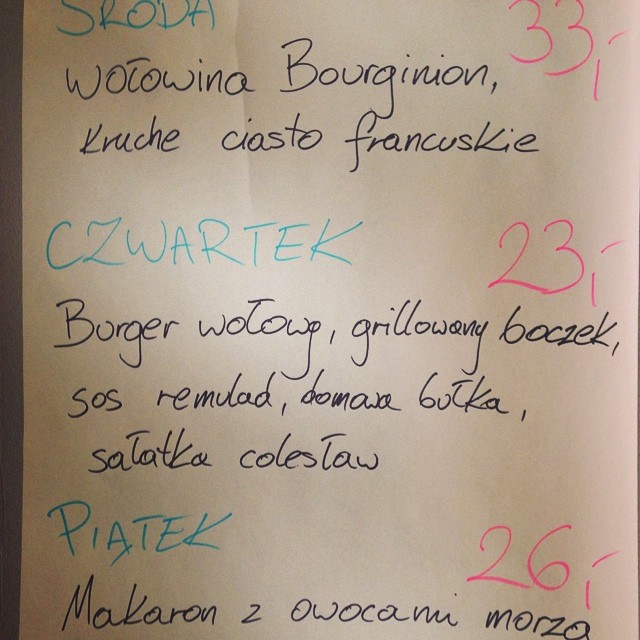 ŚRODA 33,-
wołowina Bourginion,
kruche ciasto francuskie
CZWARTEK 23,-
Burger wołowy, grillowany boczek,
sos remulad, domowa bułka,
sałatka colesław
PIĄTEK 26,-
Makaron z owocami morza